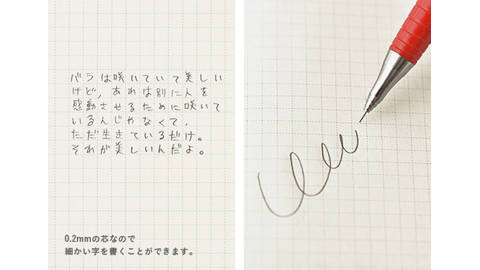 バラは咲いていて美しい
けど、あれは別に人を
感動させるために咲いて
いるんじゃなくて、
ただ生きているだけ。
それが美しいんだよ。
0.2mmの芯なので
細かい字を書くことができます。